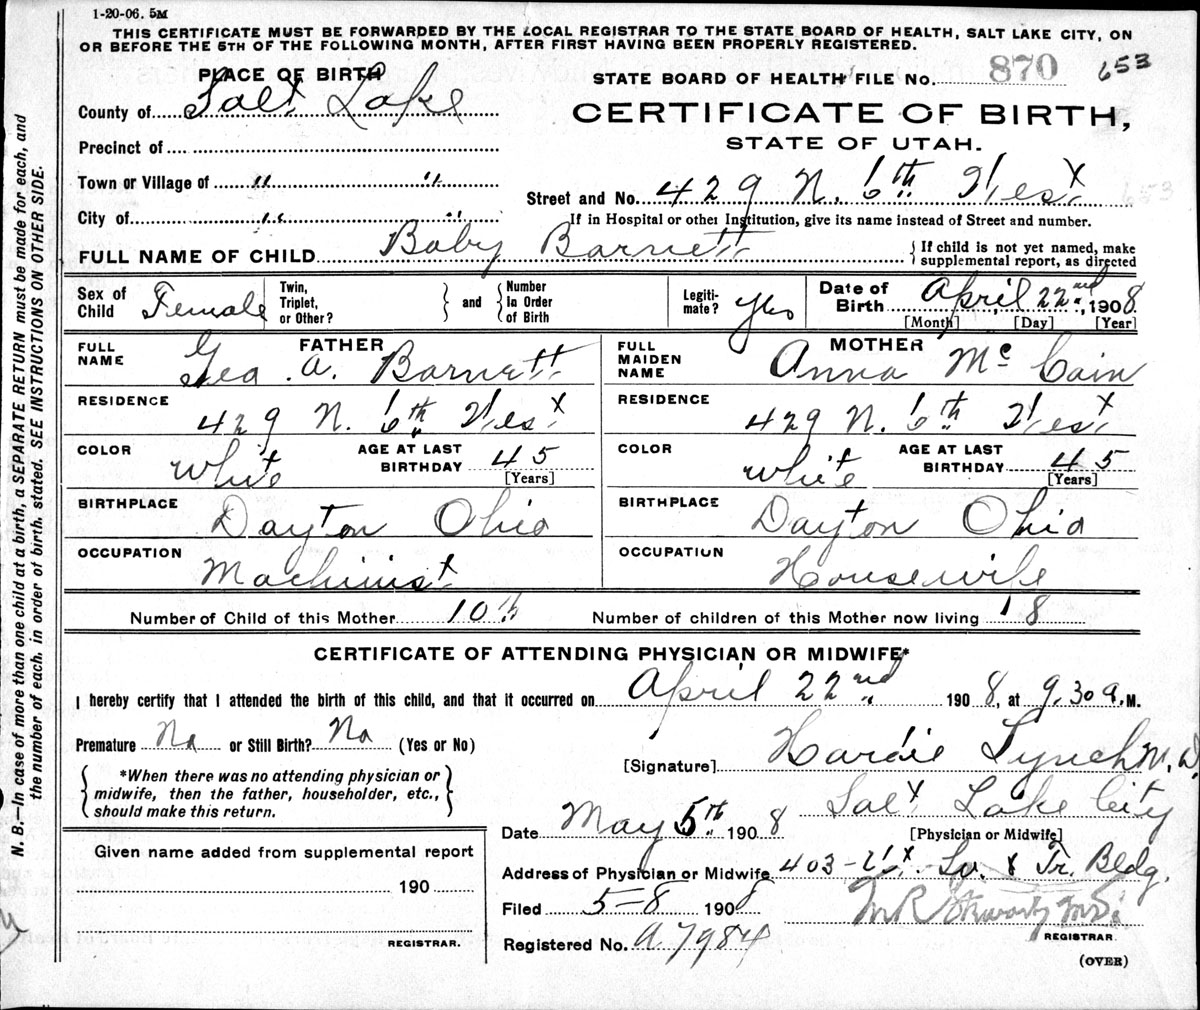 1-20-06. 5M
THIS CERTIFICATE MUST BE FORWARDED BY THE LOCAL REGISTRAR TO THE STATE BOARD OF HEALTH, SALT LAKE CITY, ON
OR BEFORE THE 5TH OF THE FOLLOWING MONTH, AFTER FIRST HAVING BEEN PROPERLY REGISTERED.
PLACE OF BIRTH
STATE BOARD OF HEALTH FILE No. 870 653
County of Salt Lake
CERTIFICATE OF BIRTH,
STATE OF UTAH.
Precinct of
Town or Village of " "
Street and No. 429 N. 6th West 653
City of " "
If in Hospital or other Institution, give its name instead of Street and number.
FULL NAME OF CHILD Baby Barnett
{ If child is not yet named, make
supplemental report, as directed
Sex of Child Female
Twin, Triplet, or Other? } and { Number In Order of Birth
Legiti-mate? Yes
Date of Birth April 22nd, 1908
[Month] [Day] [Year]
FATHER
FULL NAME Geo. A. Barnett
MOTHER
FULL MAIDEN NAME Anna McCain
RESIDENCE 429 N. 6th West
RESIDENCE 429 N. 6th West
COLOR White AGE AT LAST BIRTHDAY 45 [Years]
COLOR White AGE AT LAST BIRTHDAY 45 [Years]
BIRTHPLACE Dayton Ohio
BIRTHPLACE Dayton Ohio
OCCUPATION Machinist
OCCUPATION Housewife
Number of Child of this Mother 10th Number of children of this Mother now living 8
CERTIFICATE OF ATTENDING PHYSICIAN OR MIDWIFE*
I hereby certify that I attended the birth of this child, and that it occurred on April 22nd 1908, at 9.30 a.M.
Premature No or Still Birth? No (Yes or No)
[Signature] Hardie Lynch M.D.
{ *When there was no attending physician or
midwife, then the father, householder, etc.,
should make this return. }
Salt Lake City
Date May 5th 1908 [Physician or Midwife]
Given name added from supplemental report
190
REGISTRAR.
Address of Physician or Midwife 403 Tr. Bldg.
Filed 5-8 1908
REGISTRAR.
Registered No. A 7984
(OVER)
N. B.—In case of more than one child at a birth, a SEPARATE RETURN must be made for each, and
the number of each, in order of birth, stated. SEE INSTRUCTIONS ON OTHER SIDE.